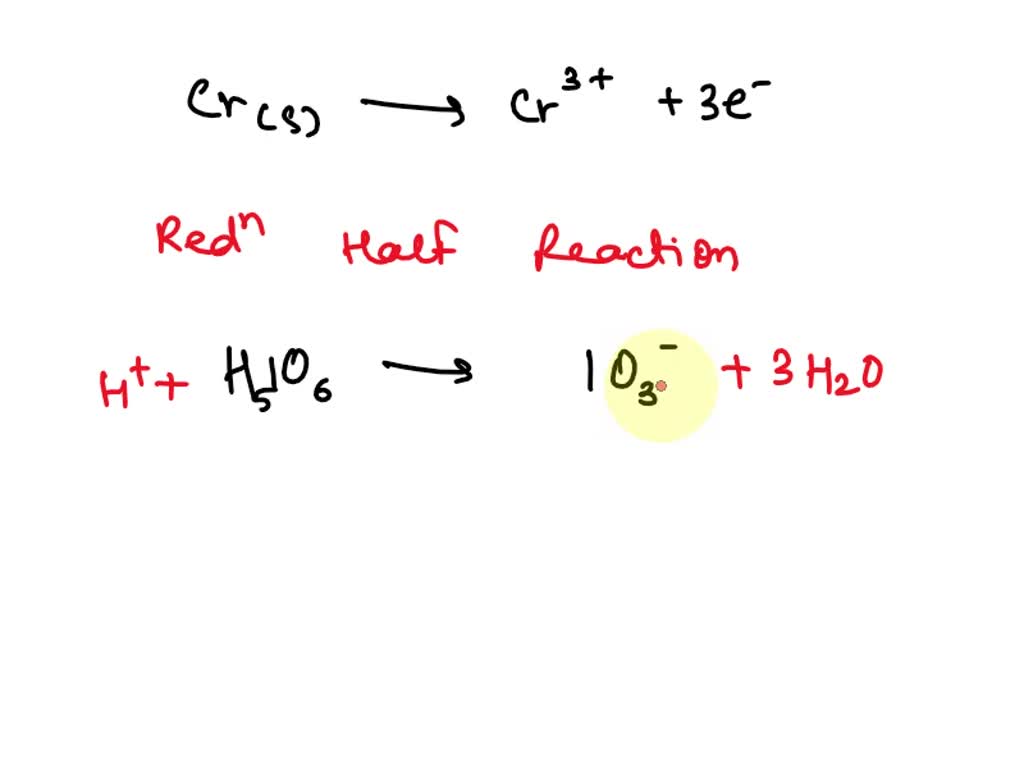 Cr(s) ⟶ Cr³⁺ + 3e⁻
Redⁿ Half Reaction
H⁺ + H₅IO₆ ⟶ IO₃⁻ + 3H₂O